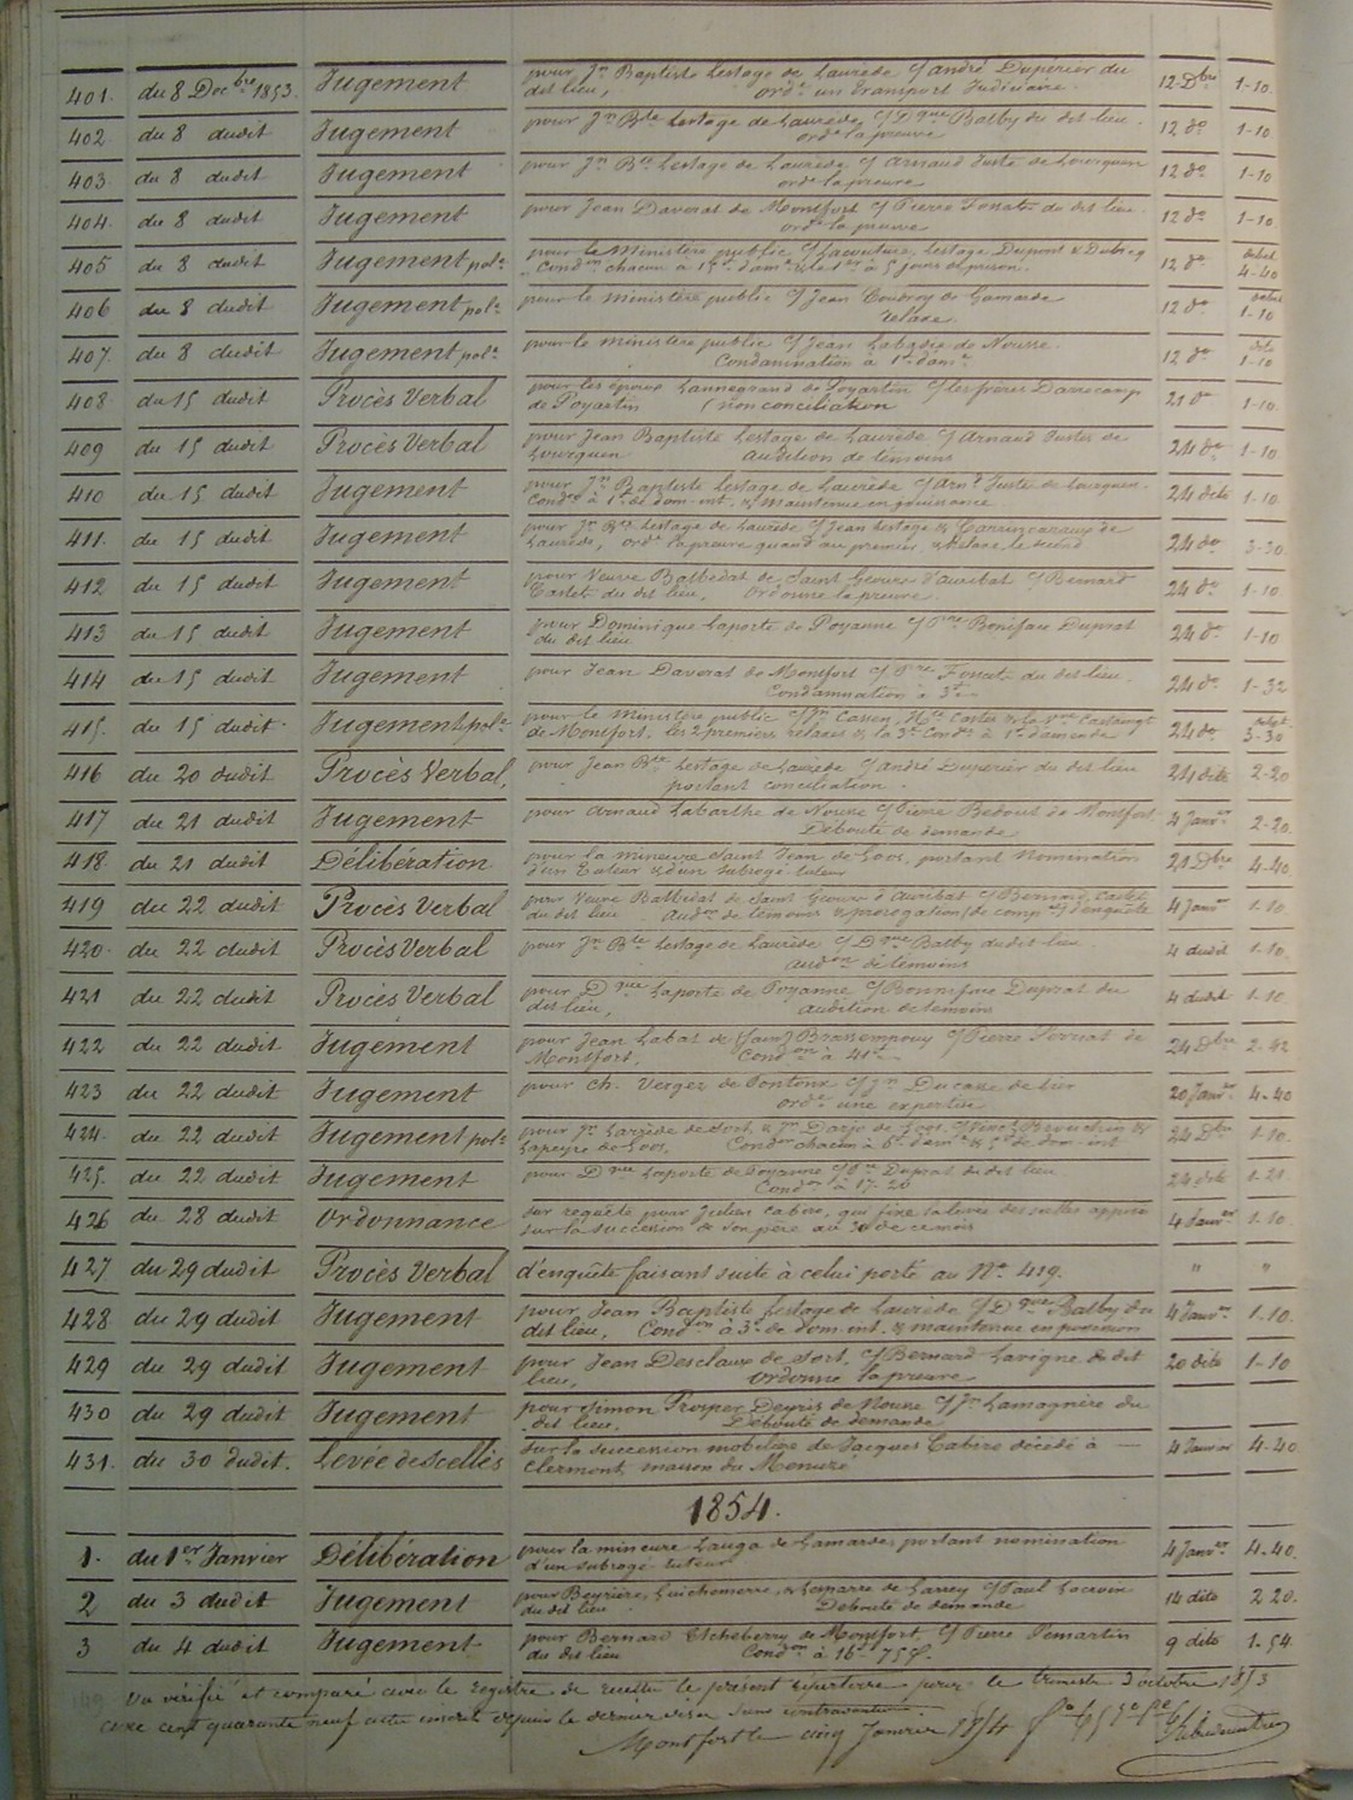 401. du 8 Decbre 1853. Jugement pour Jn Baptiste Lestage de Laurède c/ andré Duperier du 12 Dbre 1-10.
dit lieu, orde un transport Judiciaire.
402 du 8 dudit Jugement pour Jn Bte Lestage de Laurède c/ Dque Balby du dit lieu. 12 do 1-10
orde la preuve
403. du 8 dudit Jugement pour Jn Bte Lestage de Laurède c/ Arnaud Juste de Lourquen 12 do 1-10
orde la preuve
404. du 8 dudit Jugement pour Jean Daverat de Montfort c/ Pierre du dit lieu. 12 do 1-10.
orde la preuve
405 du 8 dudit Jugement pole pour le Ministère public c/ Lacouture, Lestage Dupont & 12 do debet
Condon chacun à 15f d'ame & le 1er à 5 jours de prison. 4-40
406 du 8 dudit Jugement pole pour le ministère public c/ Jean de Gamarde 12 do debet
relaxe. 1-10
407. du 8 dudit Jugement pole pour le ministère public c/ Jean de Nousse. 12 do dito
Condamnation à 1f d'ame 1-10
408 du 15 dudit Procès Verbal pour les époux Lannegrand de Poyartin c/ les frères Darrecamp 21 do 1-10.
de Poyartin (non conciliation
409 du 15 dudit Procès Verbal pour Jean Baptiste Lestage de Laurède c/ Arnaud Justes de 24 do 1-10
Lourquen audition de témoins
410 du 15 dudit Jugement pour Jn Baptiste Lestage de Laurède c/ Arnd Juste de Lourquen. 24 dito 1-10.
Condon à 1f de dom-int. & maintenue en jouissance
411. du 15 dudit Jugement pour Jn Bte Lestage de Laurède c/ Jean Lestage & de 24 do 3-30.
Laurède, orde la preuve quand au premier, & relaxe le second
412 du 15 dudit Jugement pour Veuve Balbedat de Saint Geours d'auribat c/ Bernard 24 do 1-10
Castet du dit lieu, Ordonne la preuve.
413 du 15 dudit Jugement pour Dominique Laporte de Poyanne c/ Boniface Duprat 24 do 1-10
du dit lieu
414 du 15 dudit Jugement pour Jean Daverat de Montfort c/ Pre du dit lieu. 24 do 1-32
Condamnation à 3f
415. du 15 dudit. Jugement pole pour le Ministère public c/ Jn Cassen, Castes & la Vve Castaingt 24 do debet
de Montfort, les 2 premiers relaxés & la 3e Conde à 1f d'amende 3-30
416 du 20 dudit Procès Verbal, pour Jean Bte Lestage de Laurède c/ andré Duperier du dit lieu 24 dito 2-20
portant conciliation.
417 du 21 dudit Jugement pour Arnaud Labarthe de Nousse c/ Pierre Bedout de Montfort 4 Janver 2-20.
Débouté de demande
418. du 21 dudit Délibération pour la mineure Saint Jean de Goos, portant Nomination 21 Dbre 4-40.
d'un tuteur & d'un subrogé-tuteur
419 du 22 dudit Procès Verbal pour Veuve Balbedat de Saint Geours d'Auribat c/ Bernard Castet 4 Janver 1-10.
du dit lieu. Audon de témoins & prorogation (de ) d'enquête
420. du 22 dudit Procès Verbal pour Jn Bte Lestage de Laurède c/ Dque Balby du dit lieu 4 dudit 1-10.
audon de témoins
421 du 22 dudit Procès Verbal pour Dque Laporte de Poyanne c/ Bonneface Duprat du 4 dudit 1-10.
dit lieu, audition de témoins
422 du 22 dudit Jugement pour Jean Labat de (Saint) Brassempouy c/ Pierre de 24 Dbre 2-42
Montfort, Condon à 41f
423 du 22 dudit Jugement pour Ch. Vergez de Pontonx c/ Jn Ducasse de 20 Janver 4-40
orde une expertise
424. du 22 dudit Jugement pole pour Jn Larrède de Sort, & Jn Darjo de Goos, c/ & 24 Dbre 1-10.
Lapeyre de Goos, Condon chacun à 6f d'ame & 5f de dom-int
425. du 22 dudit Jugement pour Dque Laporte de Poyanne c/ Duprat du dit lieu 24 dito 1-21.
Condon à 17-20
426 du 28 dudit Ordonnance sur requête pour Julien Cabiro, qui fixe la levée des scellés apposés 4 Janver 1-10.
sur la succession de son père au 30 de ce mois
427 du 29 dudit Procès Verbal d'enquête faisant suite à celui porté au No 419. " "
428 du 29 dudit Jugement pour Jean Baptiste Lestage de Laurède c/ Dque Balby du 4 Janver 1-10.
dit lieu, Condon à 3f de dom-int. & maintenue en possession
429 du 29 dudit Jugement pour Jean Desclaux de Sort, c/ Bernard Lavigne du dit 20 dito 1-10
lieu, ordonne la preuve
430 du 29 dudit Jugement pour Simon Prosper Deyris de Nousse c/ Jn Lamagnère du
dit lieu. Débouté de demande
431. du 30 dudit. Levée de Scellés sur la succession mobilière de Jacques Cabiro décédé à — 4 Janvier 4-40
Clermont, maison du
1854.
1. du 1er Janvier Délibération pour la mineure Lauga de Gamarde, portant nomination 4 Janver 4-40.
d'un subrogé-tuteur
2 du 3 dudit Jugement pour Beyrière, & Laparre de Larrey c/ Paul Lacroix 14 dito 2 20.
du dit lieu. Débouté de demande
3 du 4 dudit Jugement pour Bernard Etcheberry de Montfort, c/ Pierre Pemartin 9 dito 1-54.
du dit lieu Condon à 16f-75c.
149 Vu vérifié et comparé avec le registre de recette le présent répertoire pour le trimestre d'octobre 1853
cent quarante neuf actes inscrits depuis le dernier visa sans contravention.
Montfort le cinq Janvier 1854